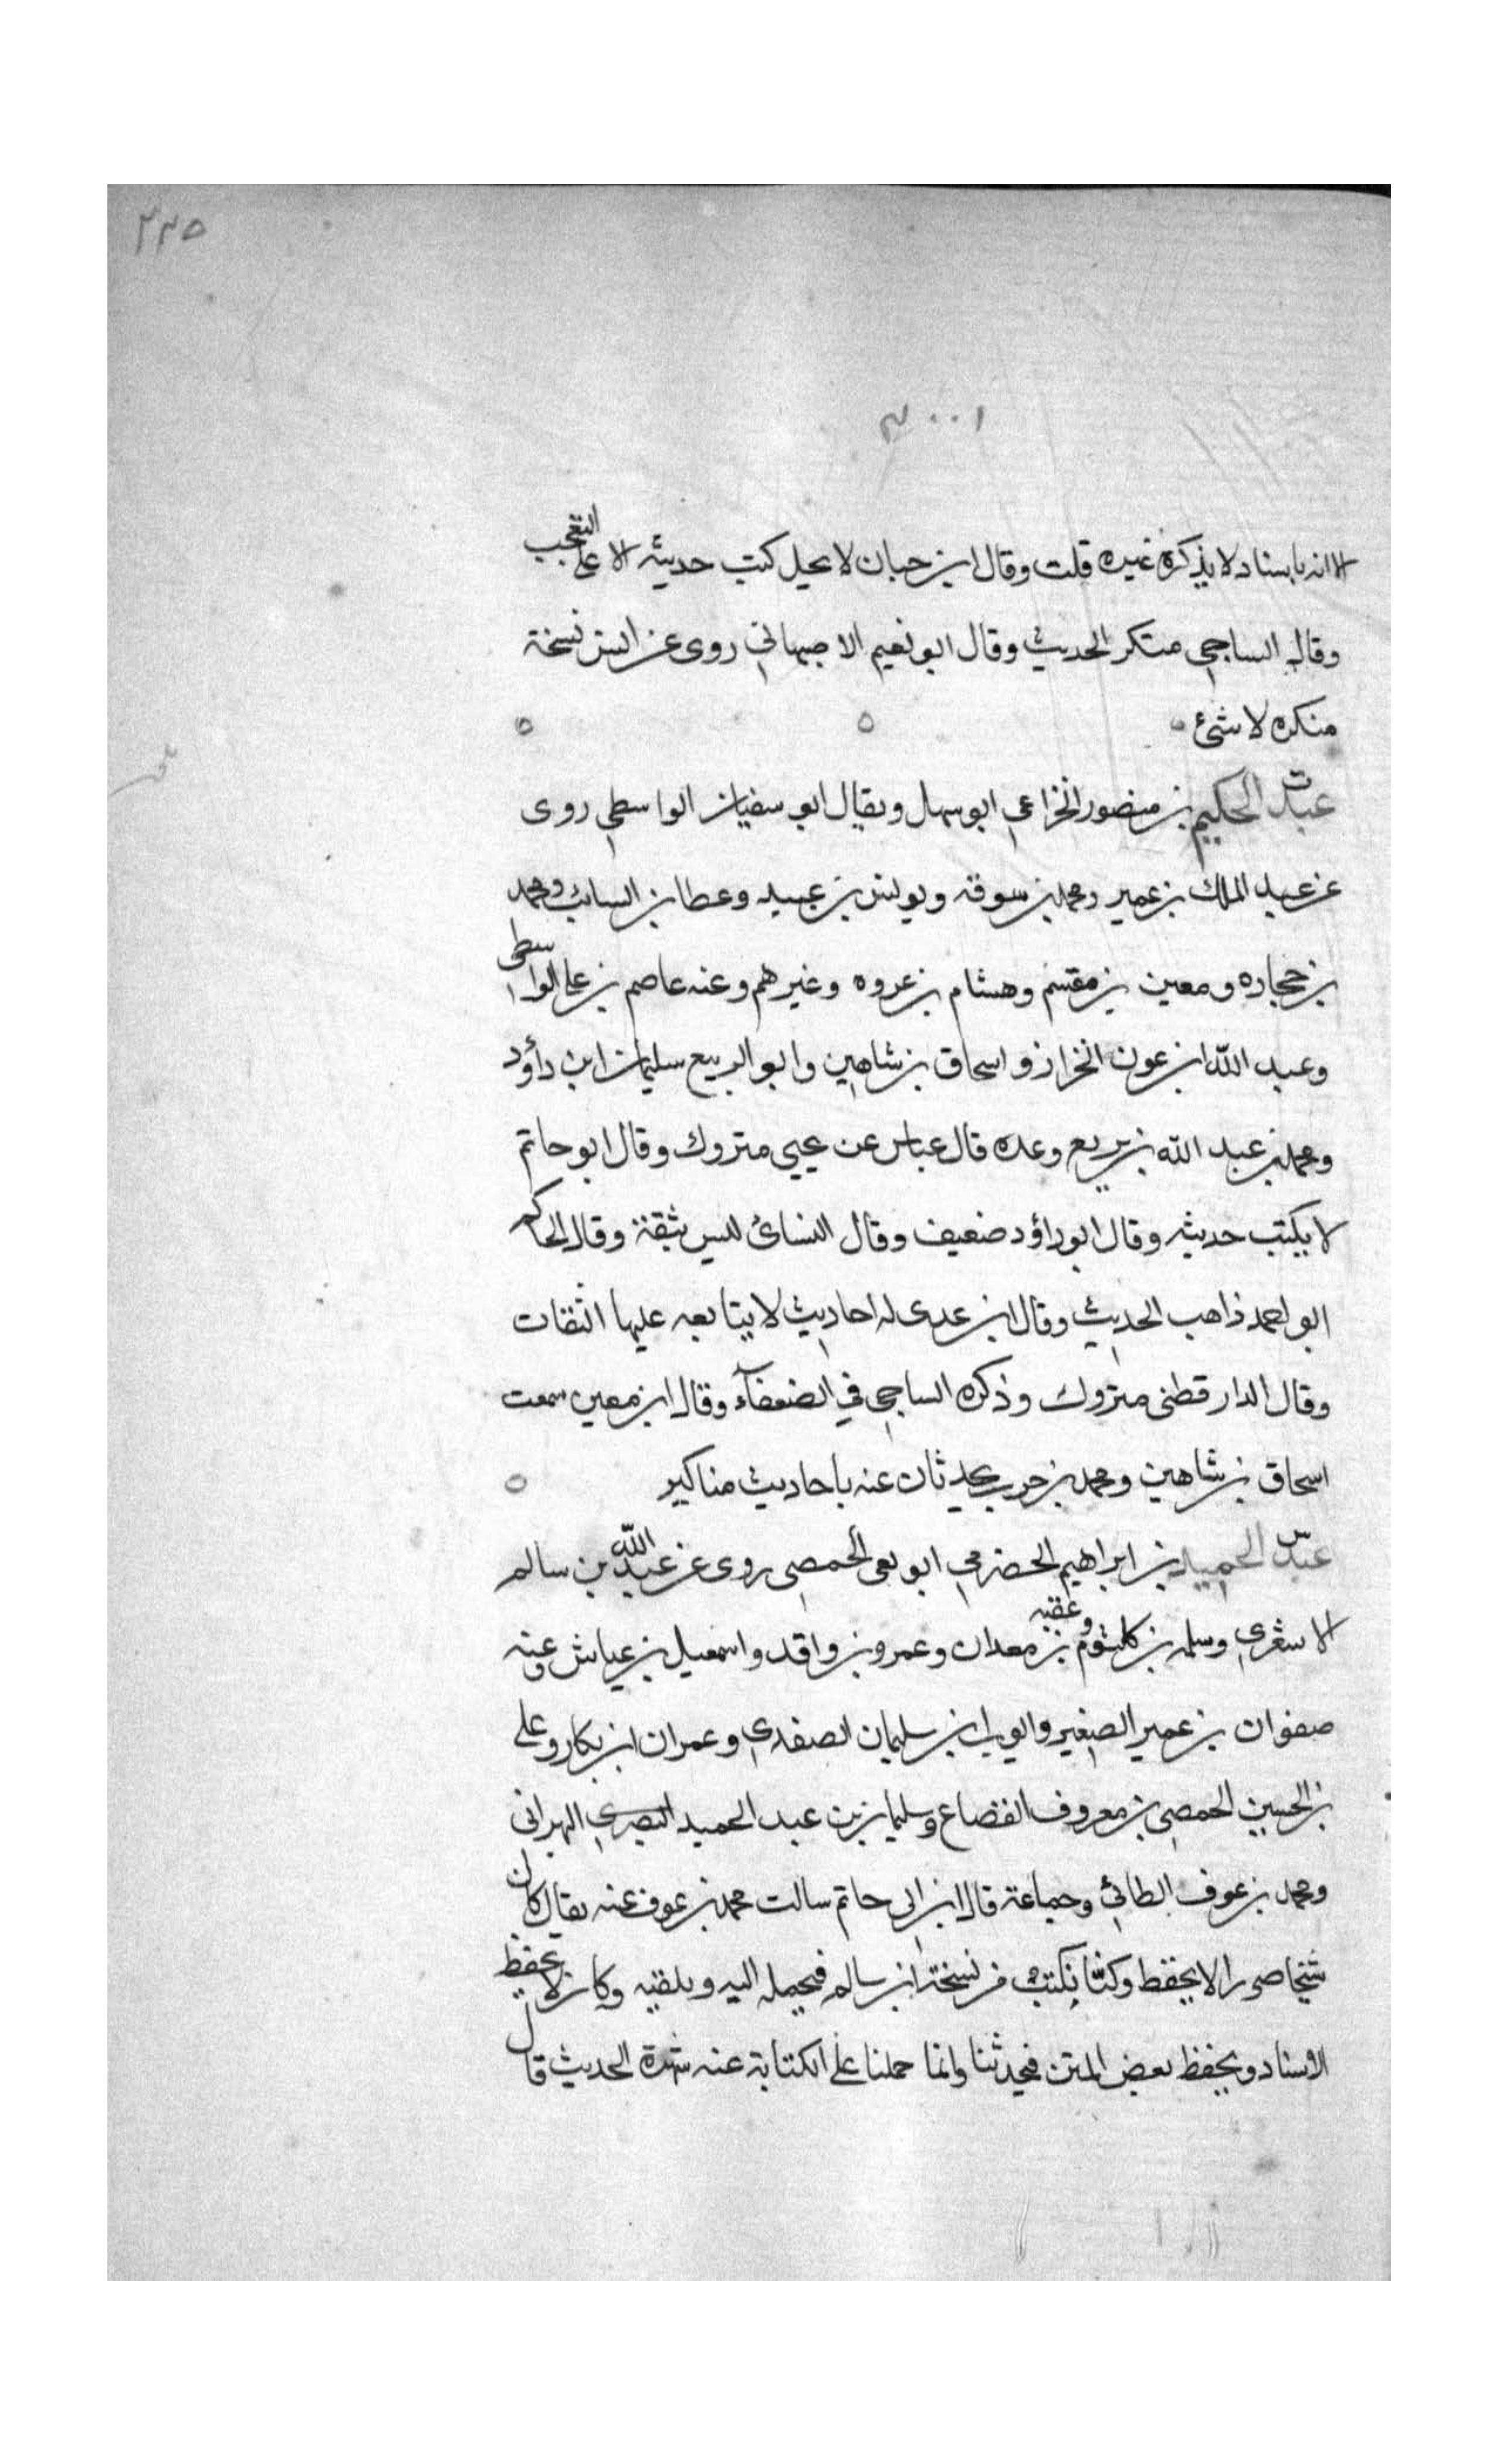 ٢٢٥
٣٠٠١
الا انه باسناد لا يذكره غيره قلت وقال ابن حبان لا يحل كتب حديثه الا على التعجب
وقال الساجي منكر الحديث وقال ابو نعيم الاصبهاني روى عن انس نسخة
منكره لا شئ
عبد الحكيم بن منصور الخزاعي ابو سهل ويقال ابو سفيان الواسطي روى
عن عبد الملك بن عمير ومحمد بن سوقه ويونس بن عبيد وعطا بن السائب ومحمد
بن حجاده ومعين بن مقسم وهشام بن عروه وغيرهم وعنه عاصم بن علي الواسطي
وعبد الله ابن عون الخراز واسحاق بن شاهين وابو الربيع سليمان ابن داؤد
ومحمد بن عبد الله بن بزيع وعده قال عباس عن يحيى متروك وقال ابو حاتم
لا يكتب حديثه وقال ابو داؤد ضعيف وقال النسائ ليس بثقة وقال الحاكم
ابو احمد ذاهب الحديث وقال ابن عدى له احاديث لا يتابعه عليها الثقات
وقال الدار قطنى متروك وذكره الساجي في الضعفآء وقال ابن معين سمعت
اسحاق بن شاهين ومحمد بن حرب يحدثان عنه باحاديث مناكير
عبد الحميد بن ابراهيم الحضرمي ابو تقى الحمصى روى عن عبد الله بن سالم
الاشعري وسلمه بن كلثوم وعقبه بن معدان وعمرو بن واقد واسمعيل بن عياش وعنه
صفوان بن عمير الصغير وايوب ابن سليمان الصفدي وعمران ابن بكار وعلى
بن الحسين الحمصى بن معروف القضاع وسليمان بن عبد الحميد البصري البهرانى
ومحمد بن عوف الطائي وجماعة قال ابن ابى حاتم سالت محمد بن عوف عنه فقال كان
شيخا ضريرا لا يحفظ وكنّا نكتب من نسخة ابن سالم فيحمله اليه ويلقنه وكان لا يحفظ
الاسناد ويحفظ بعض المتن فيحدثنا وانما حملنا على الكتابة عنه شهرة الحديث قال